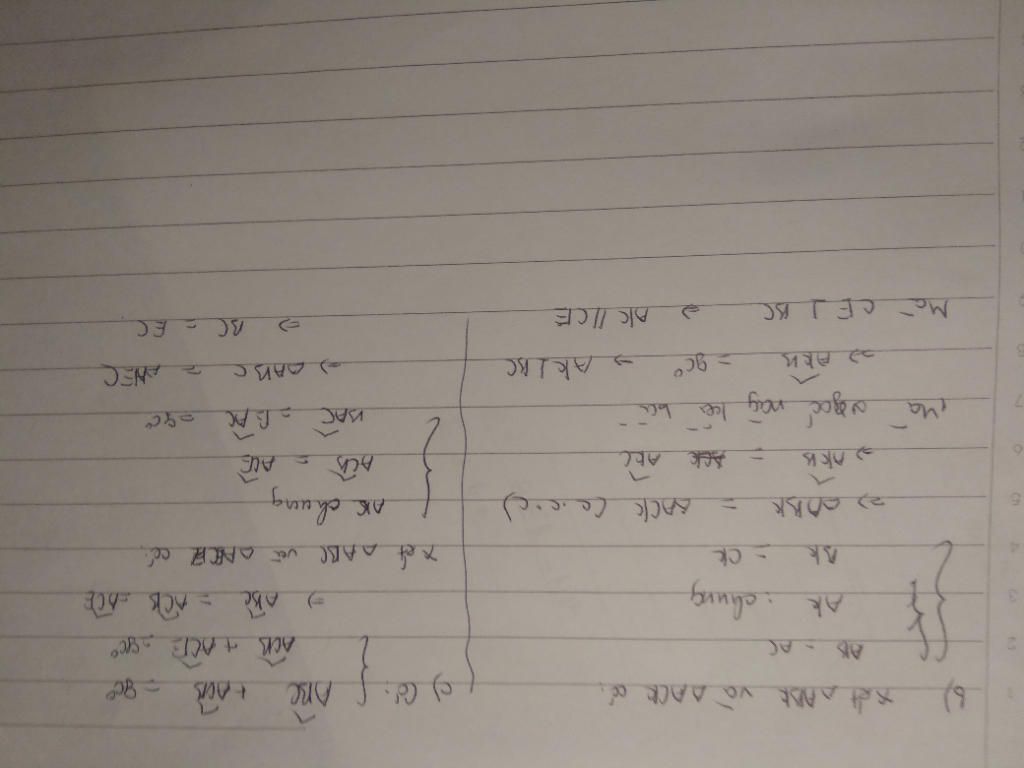 b) Xét ΔABK và ΔACK có:
AB = AC
AK : chung
BK = CK
⇒ ΔABK = ΔACK (c.c.c)
⇒ AKB = AKC
Mà 2 góc này kề bù
⇒ AKB = 90° ⇒ AK ⊥ BC
Mà CE ⊥ BC ⇒ AK // CE
c) Có: ABC + ACB = 90°
ACB + ACE = 90°
⇒ ABC = ACB = ACE
Xét ΔABC và ΔAEC có:
AK chung
ACB = ACE
BAC = EAC = 90°
⇒ ΔABC = ΔAEC
⇒ BC = EC